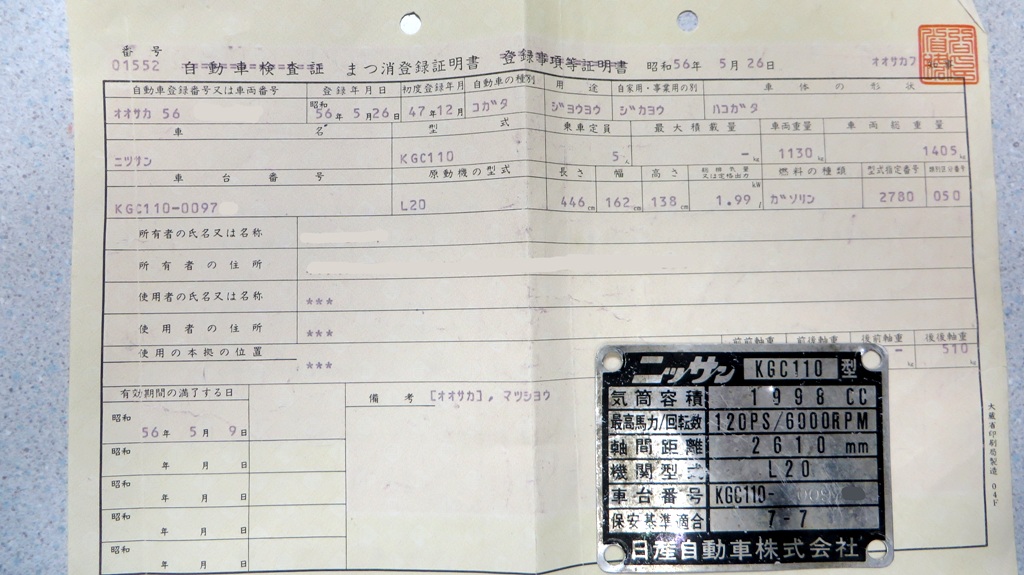 番号
01552 自動車検査証 まつ消登録証明書 登録事項等証明書 昭和56年 5月26日 オオサカフ
自動車登録番号又は車両番号 登録年月日 初度登録年月 自動車の種別 用途 自家用・事業用の別 車体の形状
オオサカ 56 昭和56年 5月26日 47年12月 コガタ ジヨウヨウ ジカヨウ ハコガタ
車名 型式 乗車定員 最大積載量 車両重量 車両総重量
ニツサン KGC110 5人 -kg 1130kg 1405kg
車台番号 原動機の型式 長さ 幅 高さ 総排気量又は定格出力 燃料の種類 型式指定番号 類別区分番号
KGC110-0097 L20 446cm 162cm 138cm 1.99 kW l ガソリン 2780 050
所有者の氏名又は名称
所有者の住所
使用者の氏名又は名称 ***
使用者の住所 ***
使用の本拠の位置 ***
前前軸重 前後軸重 後前軸重 後後軸重
- 510
有効期間の満了する日 備考 [オオサカ],マツシヨウ
昭和 56年 5月 9日
昭和 年 月 日
昭和 年 月 日
昭和 年 月 日
昭和 年 月 日
大蔵省印刷局製造 04F
ニッサン KGC110 型
気筒容積 1998 CC
最高馬力/回転数 120PS/6000RPM
軸間距離 2610 mm
機関型式 L20
車台番号 KGC110-
保安基準適合 7-7
日産自動車株式会社